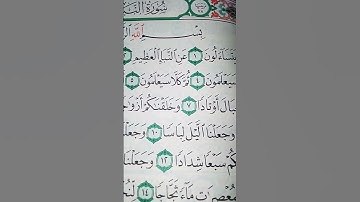 سُورَةُ النَّبَ
بِسْمِ اللَّهِ ال
يَتَسَاءَلُونَ ١ عَنِ النَّبَإِ الْعَظِيمِ ٢
سَيَعْلَمُونَ ٤ ثُمَّ كَلَّا سَيَعْلَمُونَ ٥
بَالَ أَوْتَادًا ٧ وَخَلَقْنَاكُمْ أَزْوَاجًا
وَجَعَلْنَا اللَّيْلَ لِبَاسًا ١٠ وَجَعَلْنَا
كُمْ سَبْعًا شِدَادًا ١٢ وَجَعَلْنَا
مُعْصِرَاتِ مَاءً ثَجَّاجًا ١٤ لِّنُخْ